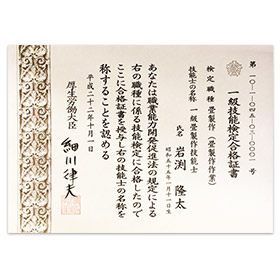 第一〇-一-〇四五-〇三-〇〇〇一号
一級技能検定合格証書
検定職種 畳製作(畳製作作業)
技能士の名称 一級畳製作技能士
氏名 岩渕隆太
昭和五十五年一月十一日生
あなたは職業能力開発促進法の規定による
右の職種に係る技能検定に合格したので
ここに合格証書を授与し右の技能士の名称を
称することを認める
平成二十二年十月一日
厚生労働大臣
細川律夫